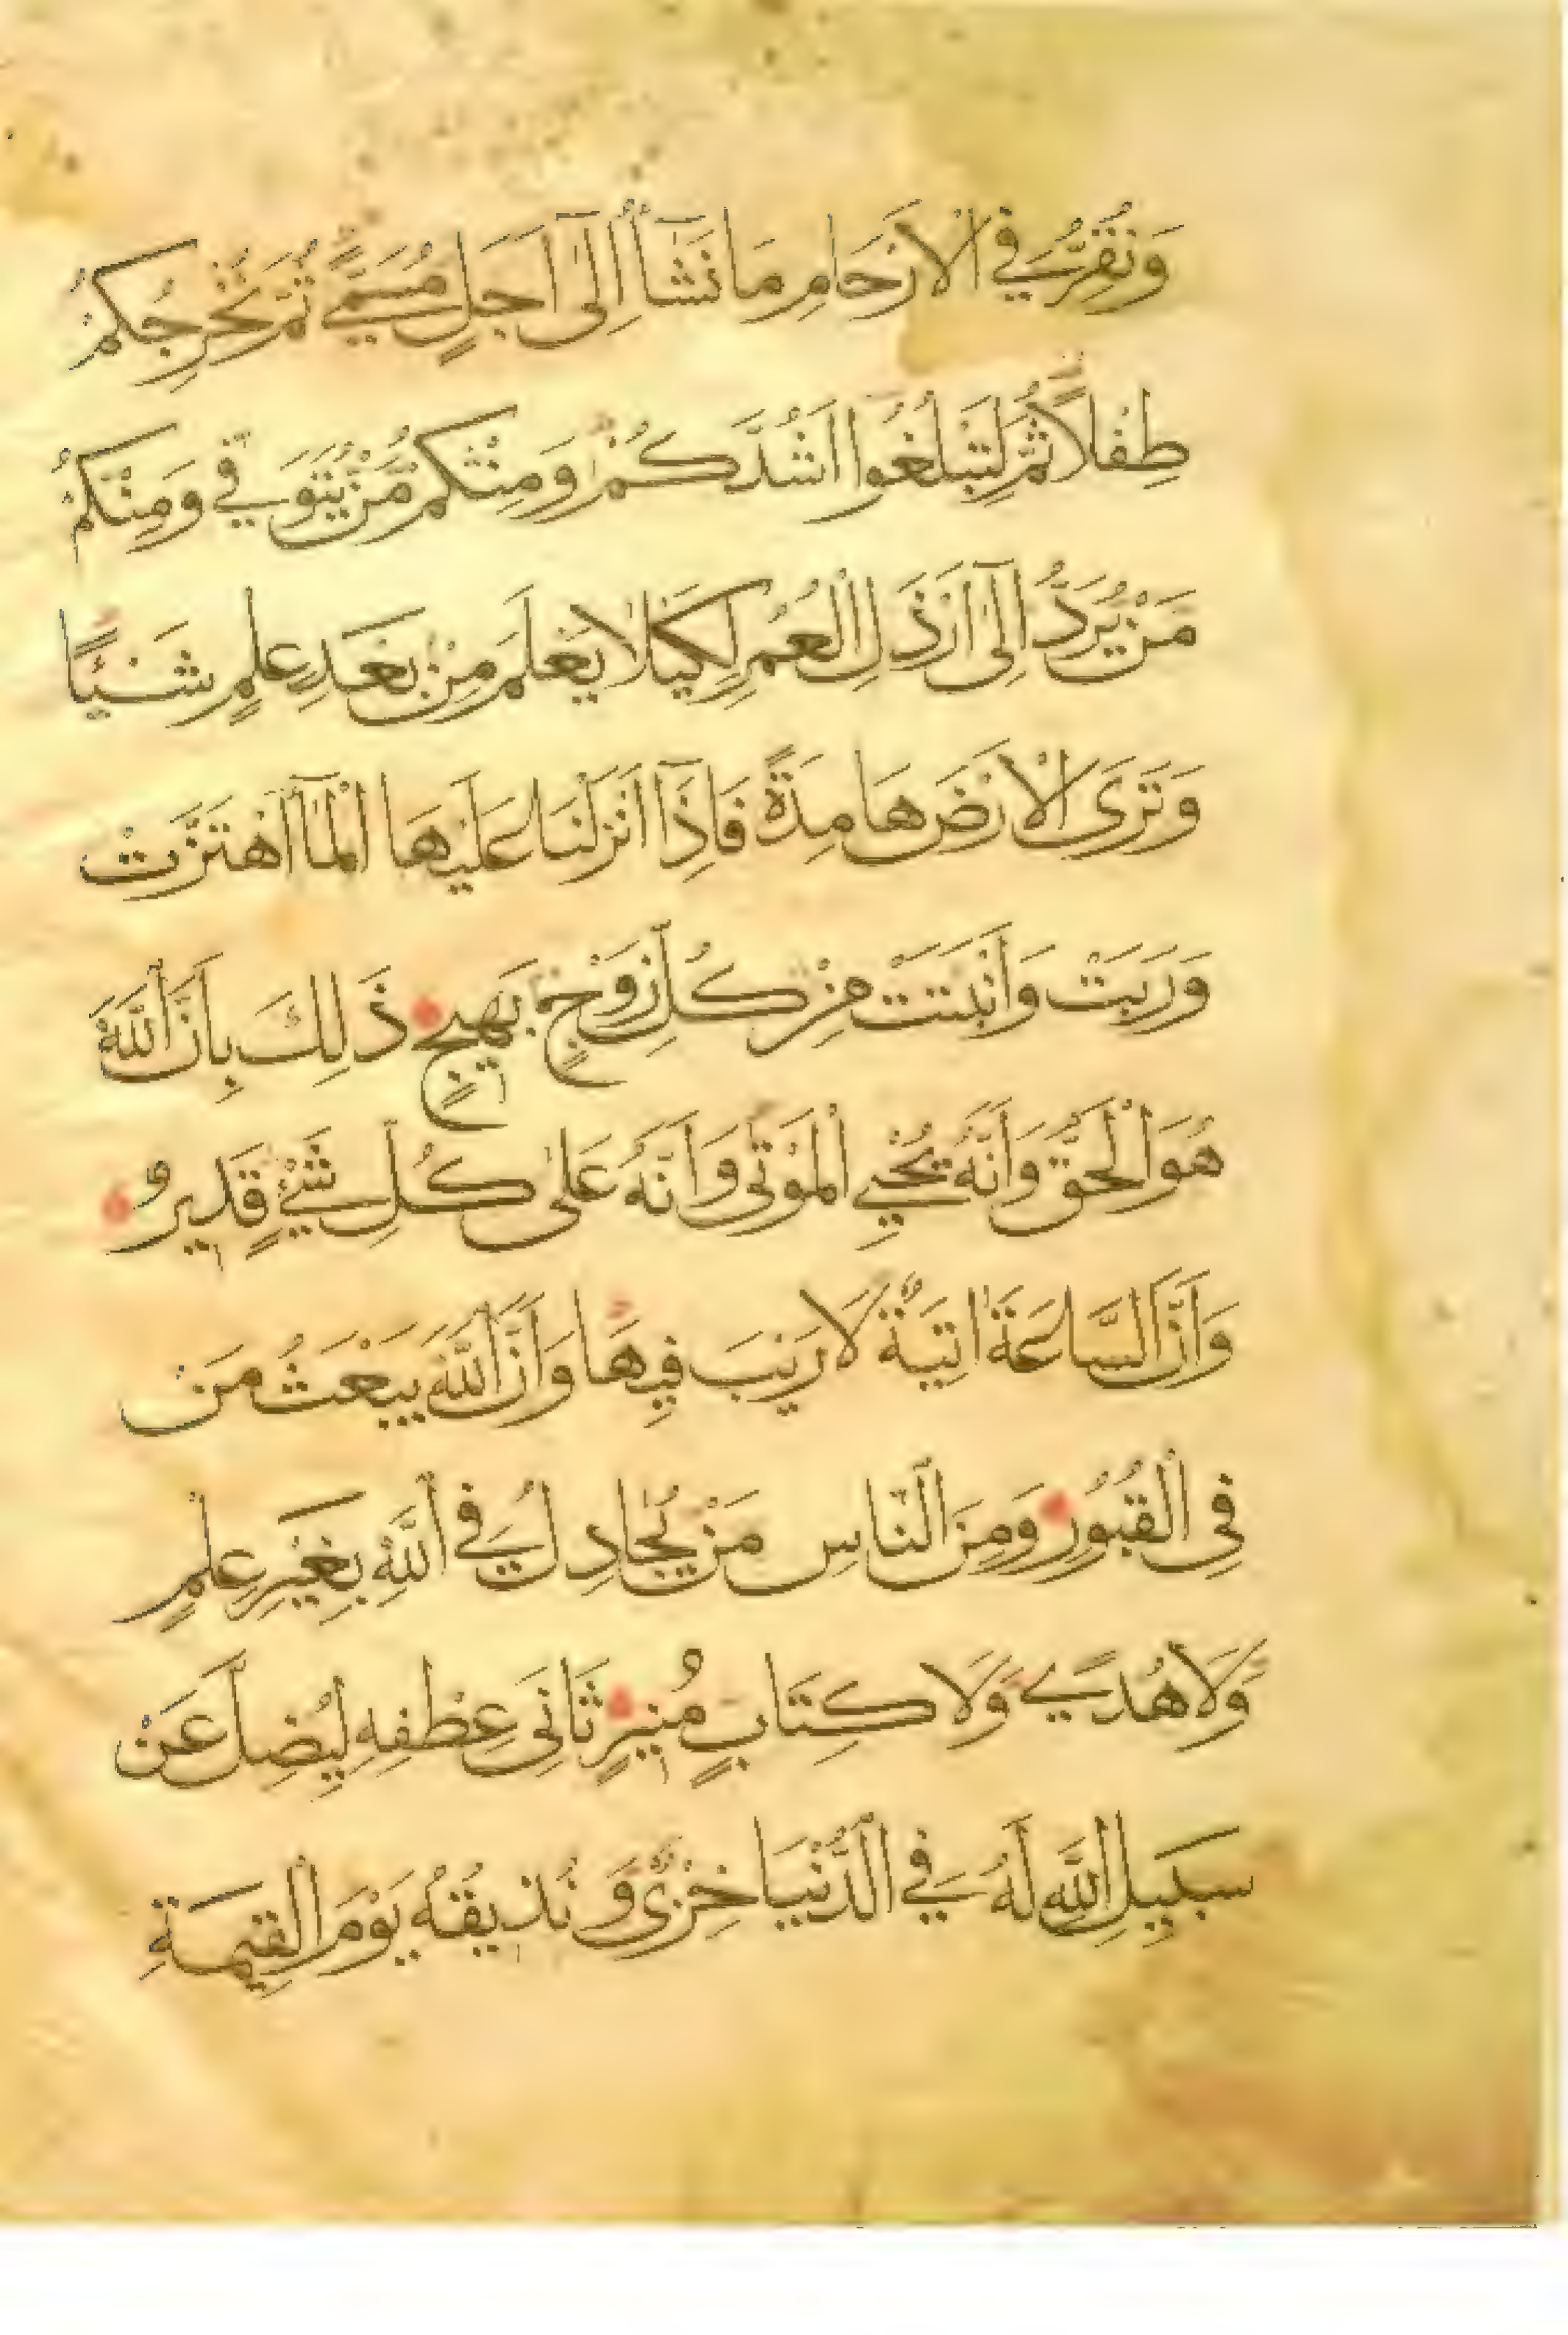 وَنُقِرُّ فِي الْاَرْحَامِ مَا نَشَآءُ اِلٰٓى اَجَلٍ مُسَمًّى ثُمَّ نُخْرِجُكُمْ
طِفْلًا ثُمَّ لِتَبْلُغُوا اَشُدَّكُمْ وَمِنْكُمْ مَنْ يُتَوَفّٰى وَمِنْكُمْ
مَنْ يُرَدُّ اِلٰٓى اَرْذَلِ الْعُمُرِ لِكَيْلَا يَعْلَمَ مِنْ بَعْدِ عِلْمٍ شَيْئًا
وَتَرَى الْاَرْضَ هَامِدَةً فَاِذَآ اَنْزَلْنَا عَلَيْهَا الْمَآءَ اهْتَزَّتْ
وَرَبَتْ وَاَنْبَتَتْ مِنْ كُلِّ زَوْجٍ بَهِيجٍ ذَلِكَ بِاَنَّ اللّٰهَ
هُوَ الْحَقُّ وَاَنَّهُ يُحْيِي الْمَوْتٰى وَاَنَّهُ عَلٰى كُلِّ شَيْءٍ قَدِيرٌ
وَاَنَّ السَّاعَةَ اٰتِيَةٌ لَا رَيْبَ فِيهَا وَاَنَّ اللّٰهَ يَبْعَثُ مَنْ
فِي الْقُبُورِ وَمِنَ النَّاسِ مَنْ يُجَادِلُ فِي اللّٰهِ بِغَيْرِ عِلْمٍ
وَلَا هُدًى وَلَا كِتَابٍ مُنِيرٍ ثَانِيَ عِطْفِهِ لِيُضِلَّ عَنْ
سَبِيلِ اللّٰهِ لَهُ فِي الدُّنْيَا خِزْيٌ وَنُذِيقُهُ يَوْمَ الْقِيٰمَةِ